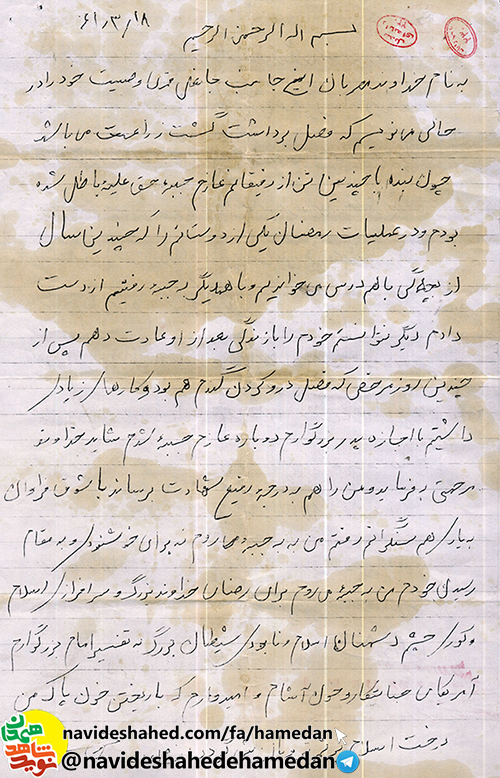 ۶۱/۳/۱۸
بسم الله الرحمن الرحیم
به نام خداوند مهربان اینجانب جانعلی وصیت خود را در
حالی می نویسم که فصل برداشت گشت زراعت می باشد
چون بنده با چندین تن از رفیقانم عازم جبهه حق علیه باطل شده
بودم و در عملیات رمضان یکی از دوستانم را که چندین سال
از بچگی باهم درس می خواندیم و باهمدیگر به جبهه رفتیم از دست
دادم دیگر نتوانستم خودم را با زندگی بعد از او عادت دهم پس از
چندین روز مرخصی که فصل درو کردن گندم هم بود و کارهای زیادی
داشتیم با اجازه پدر بزرگوارم دوباره عازم جبهه شدم شاید خداوند
مرحمتی بفرماید و من را هم به درجه رفیع شهادت برساند با شوق فراوان
به یاری هم سنگرانم رفتم من به جبهه می روم نه برای خوشنودی و به مقام
رسیدن خودم من به جبهه می روم برای رضای خداوند بزرگ و سرافرازی اسلام
و کوری چشم دشمنان اسلام و نابودی شیطان بزرگ به تفسیر امام بزرگوارم
آمریکای جنایتکار و خون آشام و امیدوارم که با ریختن خون پاک من
درخت اسلام
navideshahed.com/fa/hamedan
@navideshahedehamedan
نوید شاهد همدان